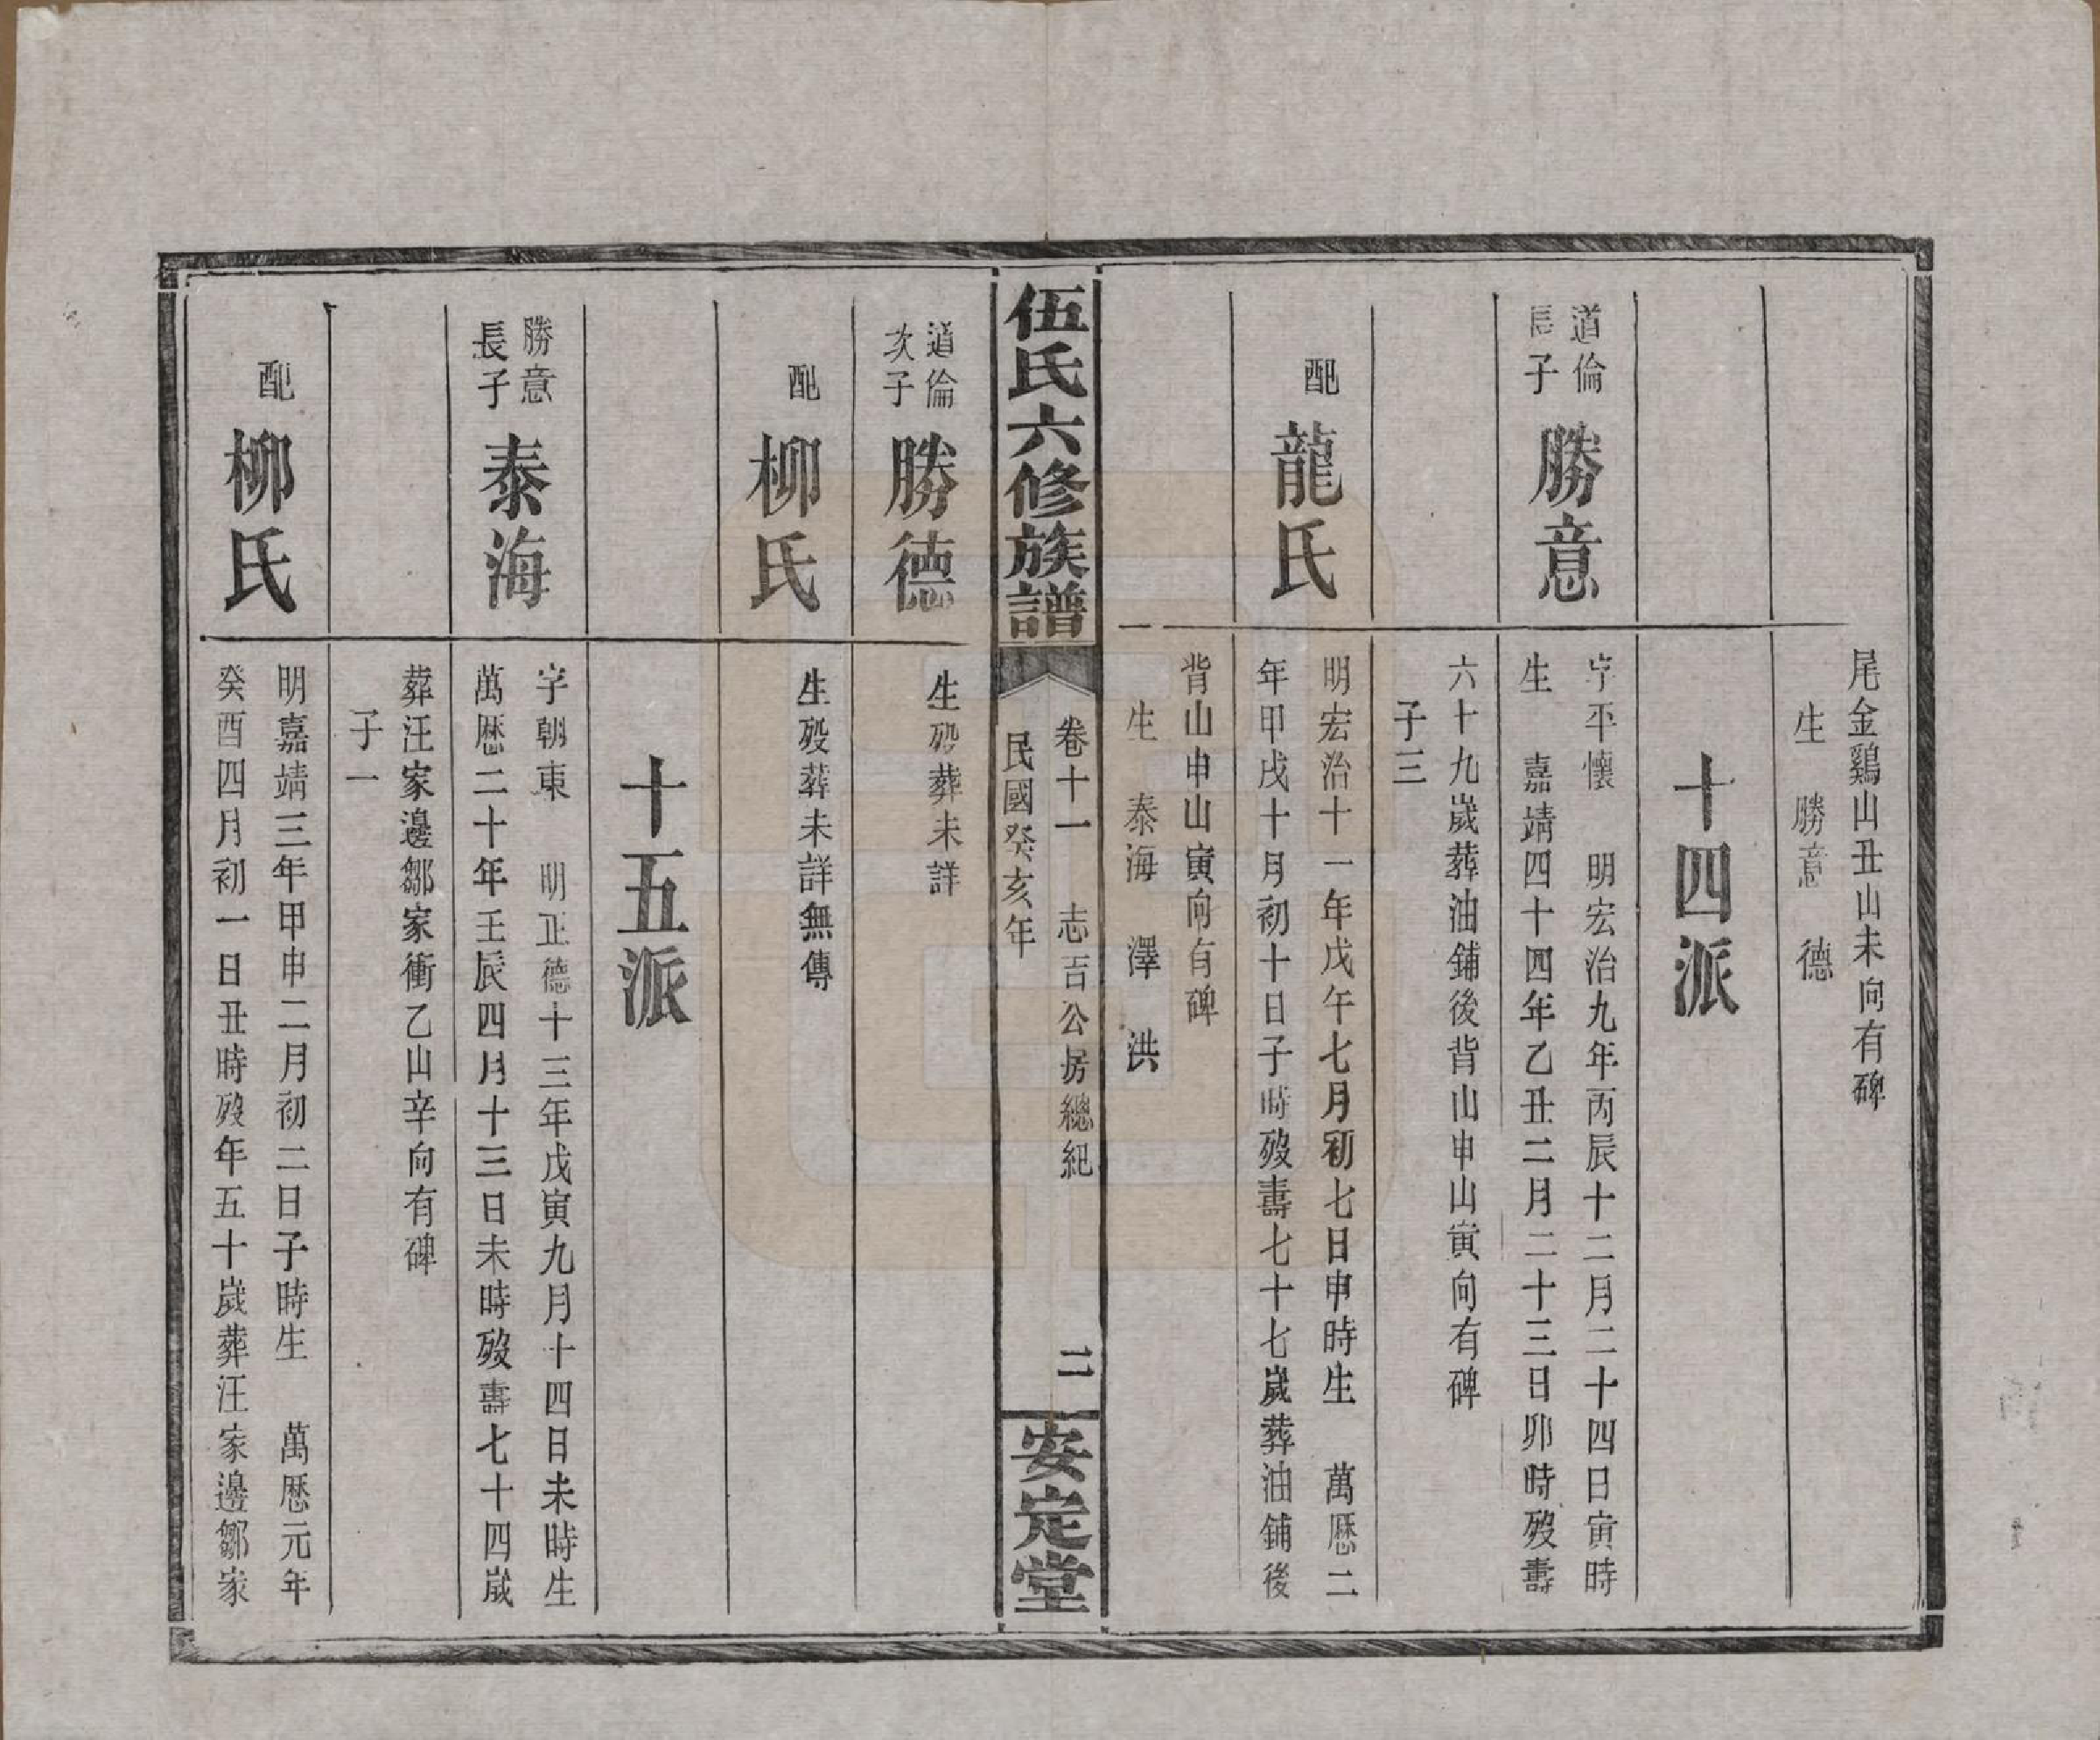 尾金鷄山丑山未向有碑
生　勝意　德
十四派
道倫
長子
勝意
字平懷　明宏治九年丙辰十二月二十四日寅時
生　嘉靖四十四年乙丑二月二十三日卯時歿壽
六十九歲葬油鋪後背山申山寅向有碑
子三
配
龍氏
明宏治十一年戊午七月初七日申時生　萬歷二
年甲戌十月初十日子時歿壽七十七歲葬油鋪後
背山申山寅向有碑
生　泰海　澤　洪
伍氏六修族譜
卷十一　志吉公房總紀
民國癸亥年
二
安定堂
道倫
次子
勝德
生歿葬未詳
配
柳氏
生歿葬未詳無傳
十五派
勝意
長子
泰海
字朝東　明正德十三年戊寅九月十四日未時生
萬歷二十年壬辰四月十三日未時歿壽七十四歲
葬汪家邊鄒家衝乙山辛向有碑
子一
配
柳氏
明嘉靖三年甲申二月初二日子時生　萬歷元年
癸酉四月初一日丑時歿年五十歲葬汪家邊鄒家